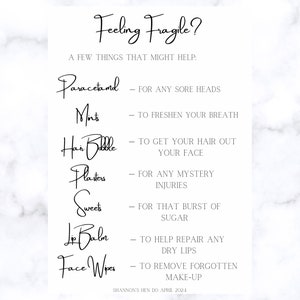 Feeling Fragile?
A FEW THINGS THAT MIGHT HELP:
Paracetamol – FOR ANY SORE HEADS
Mints – TO FRESHEN YOUR BREATH
Hair Bobble – TO GET YOUR HAIR OUT
YOUR FACE
Plasters – FOR ANY MYSTERY
INJURIES
Sweets – FOR THAT BURST OF
SUGAR
Lip Balm – TO HELP REPAIR ANY
DRY LIPS
Face Wipes – TO REMOVE FORGOTTEN
MAKE-UP
SHANNON'S HEN DO APRIL 2024